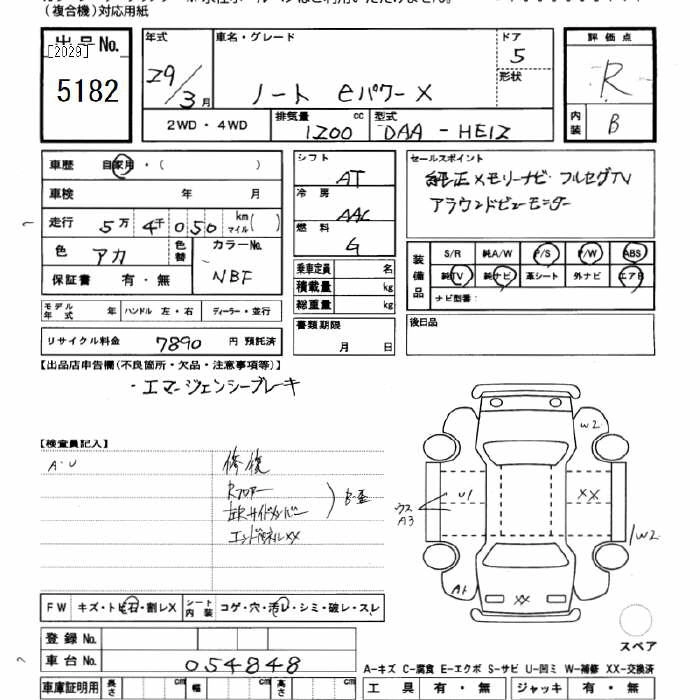 (複合機)対応用紙
出品No.
[2029]
5182
年式
29/3月
車名・グレード
ノート eパワーX
ドア
5
形状
2WD・4WD
排気量 cc
1200
型式
DAA-HE12
評価点
R
内装
B
車歴 自家用・( )
車検 年 月
走行 5万4千050 km マイル( )
色 アカ 色替
カラーNo.
NBF
保証書 有・無
シフト
AT
冷房
AAC
燃料
G
乗車定員 名
積載量 kg
総重量 kg
セールスポイント
純正メモリーナビ フルセグTV
アラウンドビューモニター
装備品
S/R 純A/W P/S P/W ABS
純TV 純ナビ 革シート 外ナビ エアB
ナビ型番:
モデル年式 年 ハンドル 左・右 ディーラー・並行
リサイクル料金 7890 円 預託済
書類期限
月 日
後日品
【出品店申告欄(不良箇所・欠品・注意事項等)】
・エマージェンシーブレーキ
【検査員記入】
A・U
修復
Rフロアー
左Rサイドメンバー
エンドパネルXX
W2
U1
XX
A3
W2
A1
XX
FW キズ・トビ石・割レX シート内装 コゲ・穴・汚レ・シミ・破レ・スレ
登録No.
車台No. 054848
スペア
A-キズ C-腐食 E-エクボ S-サビ U-凹ミ W-補修 XX-交換済
車庫証明用 長さ cm 幅 cm 高さ cm
工具 有・無 ジャッキ 有・無